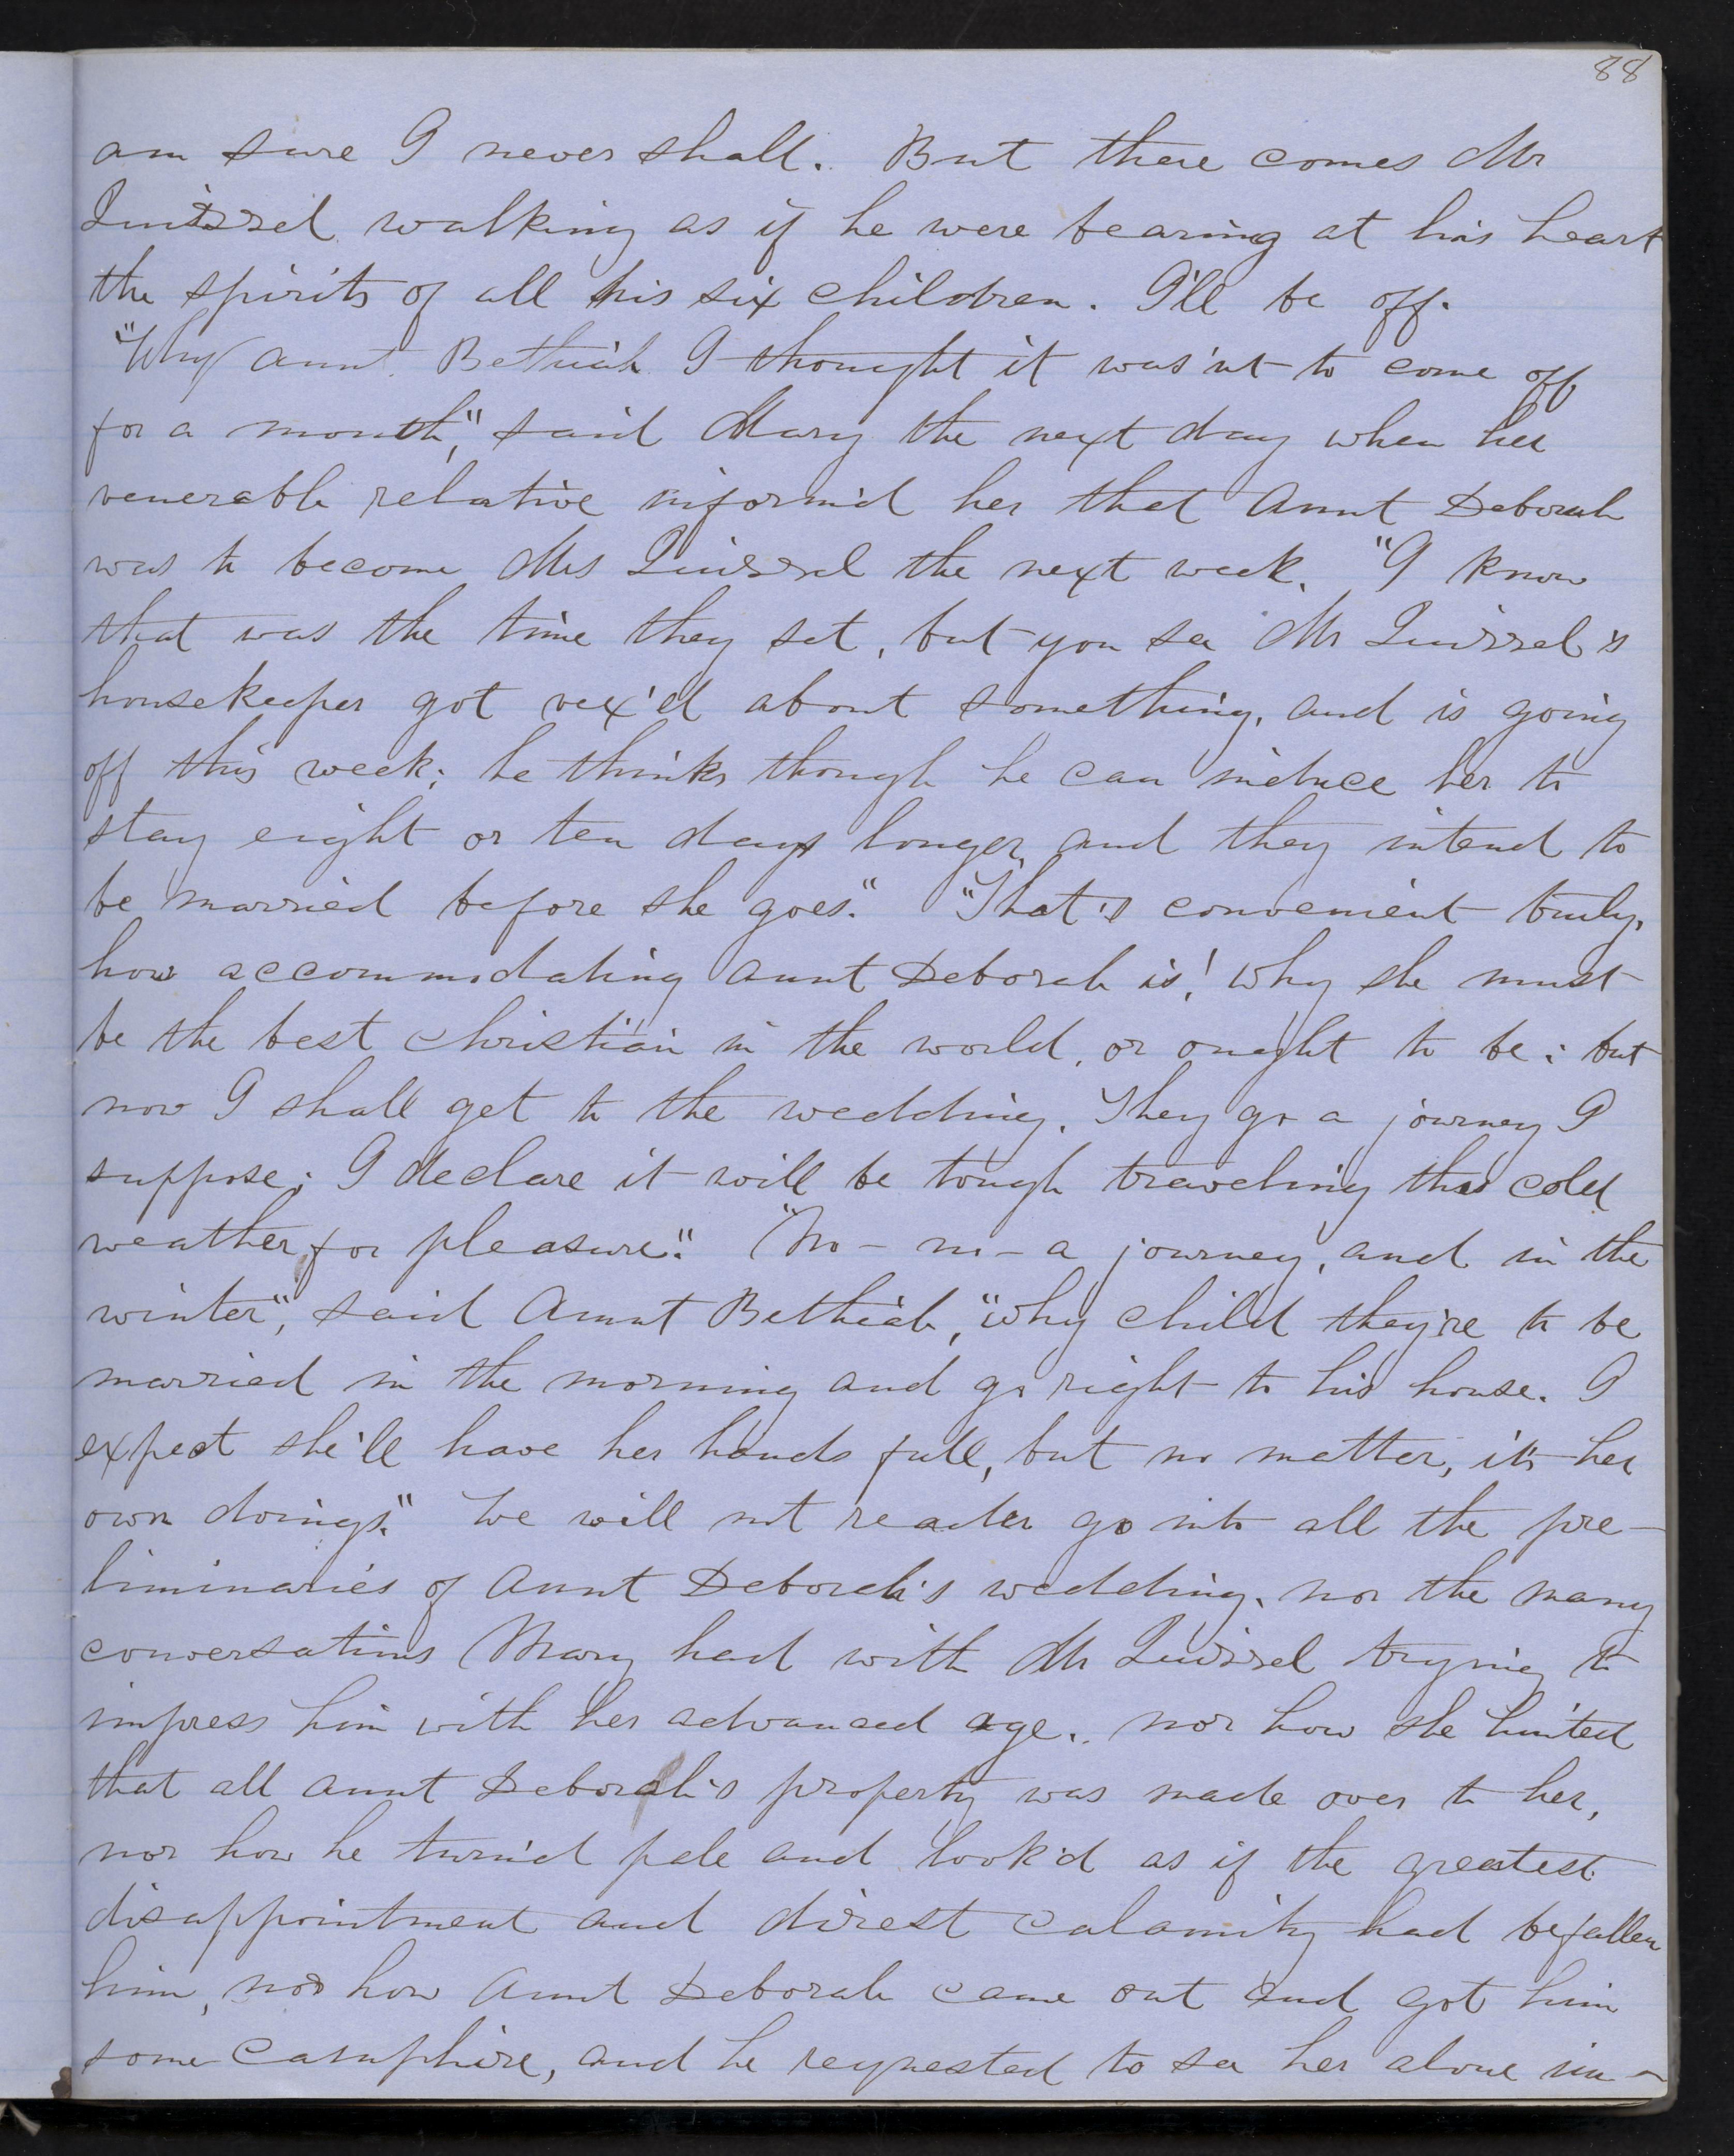 88
am sure I never shall. But there comes Mr
Quirrel walking as if he were bearing at his heart
the spirits of all his six children. I'll be off.
"Why aunt Bethiah I thought it was'nt to come off
for a month," said Mary the next day when her
venerable relative inform'd her that Aunt Deborah
was to become Mrs Quirrel the next week. "I know
that was the time they set, but you see Mr Quirrel's
housekeeper got vex'd about something, and is going
off this week; he thinks though he can induce her to
stay eight or ten days longer and they intend to
be married before she goes." "That's convenient truly,
how accommodating aunt Deborah is! why she must
be the best christian in the world, or ought to be; but
now I shall get to the wedding. They go a journey I
suppose; I declare it will be tough traveling this cold
weather for pleasure." "No – no – a journey, and in the
winter", said Aunt Bethiah, "why child they're to be
married in the morning and go right to his house. I
expect she'll have her hands full, but no matter, it's her
own doings." We will not reader go into all the pre-
liminaries of Aunt Deborah's wedding, nor the many
conversations Mary had with Mr Quirrel trying to
impress him with her advanced age, nor how she hinted
that all aunt Deborah's property was made over to her,
nor how he turn'd pale and look'd as if the greatest
disappointment and direst calamity had befallen
him, nor how Aunt Deborah came out and got him
some camphire, and he requested to see her alone im-